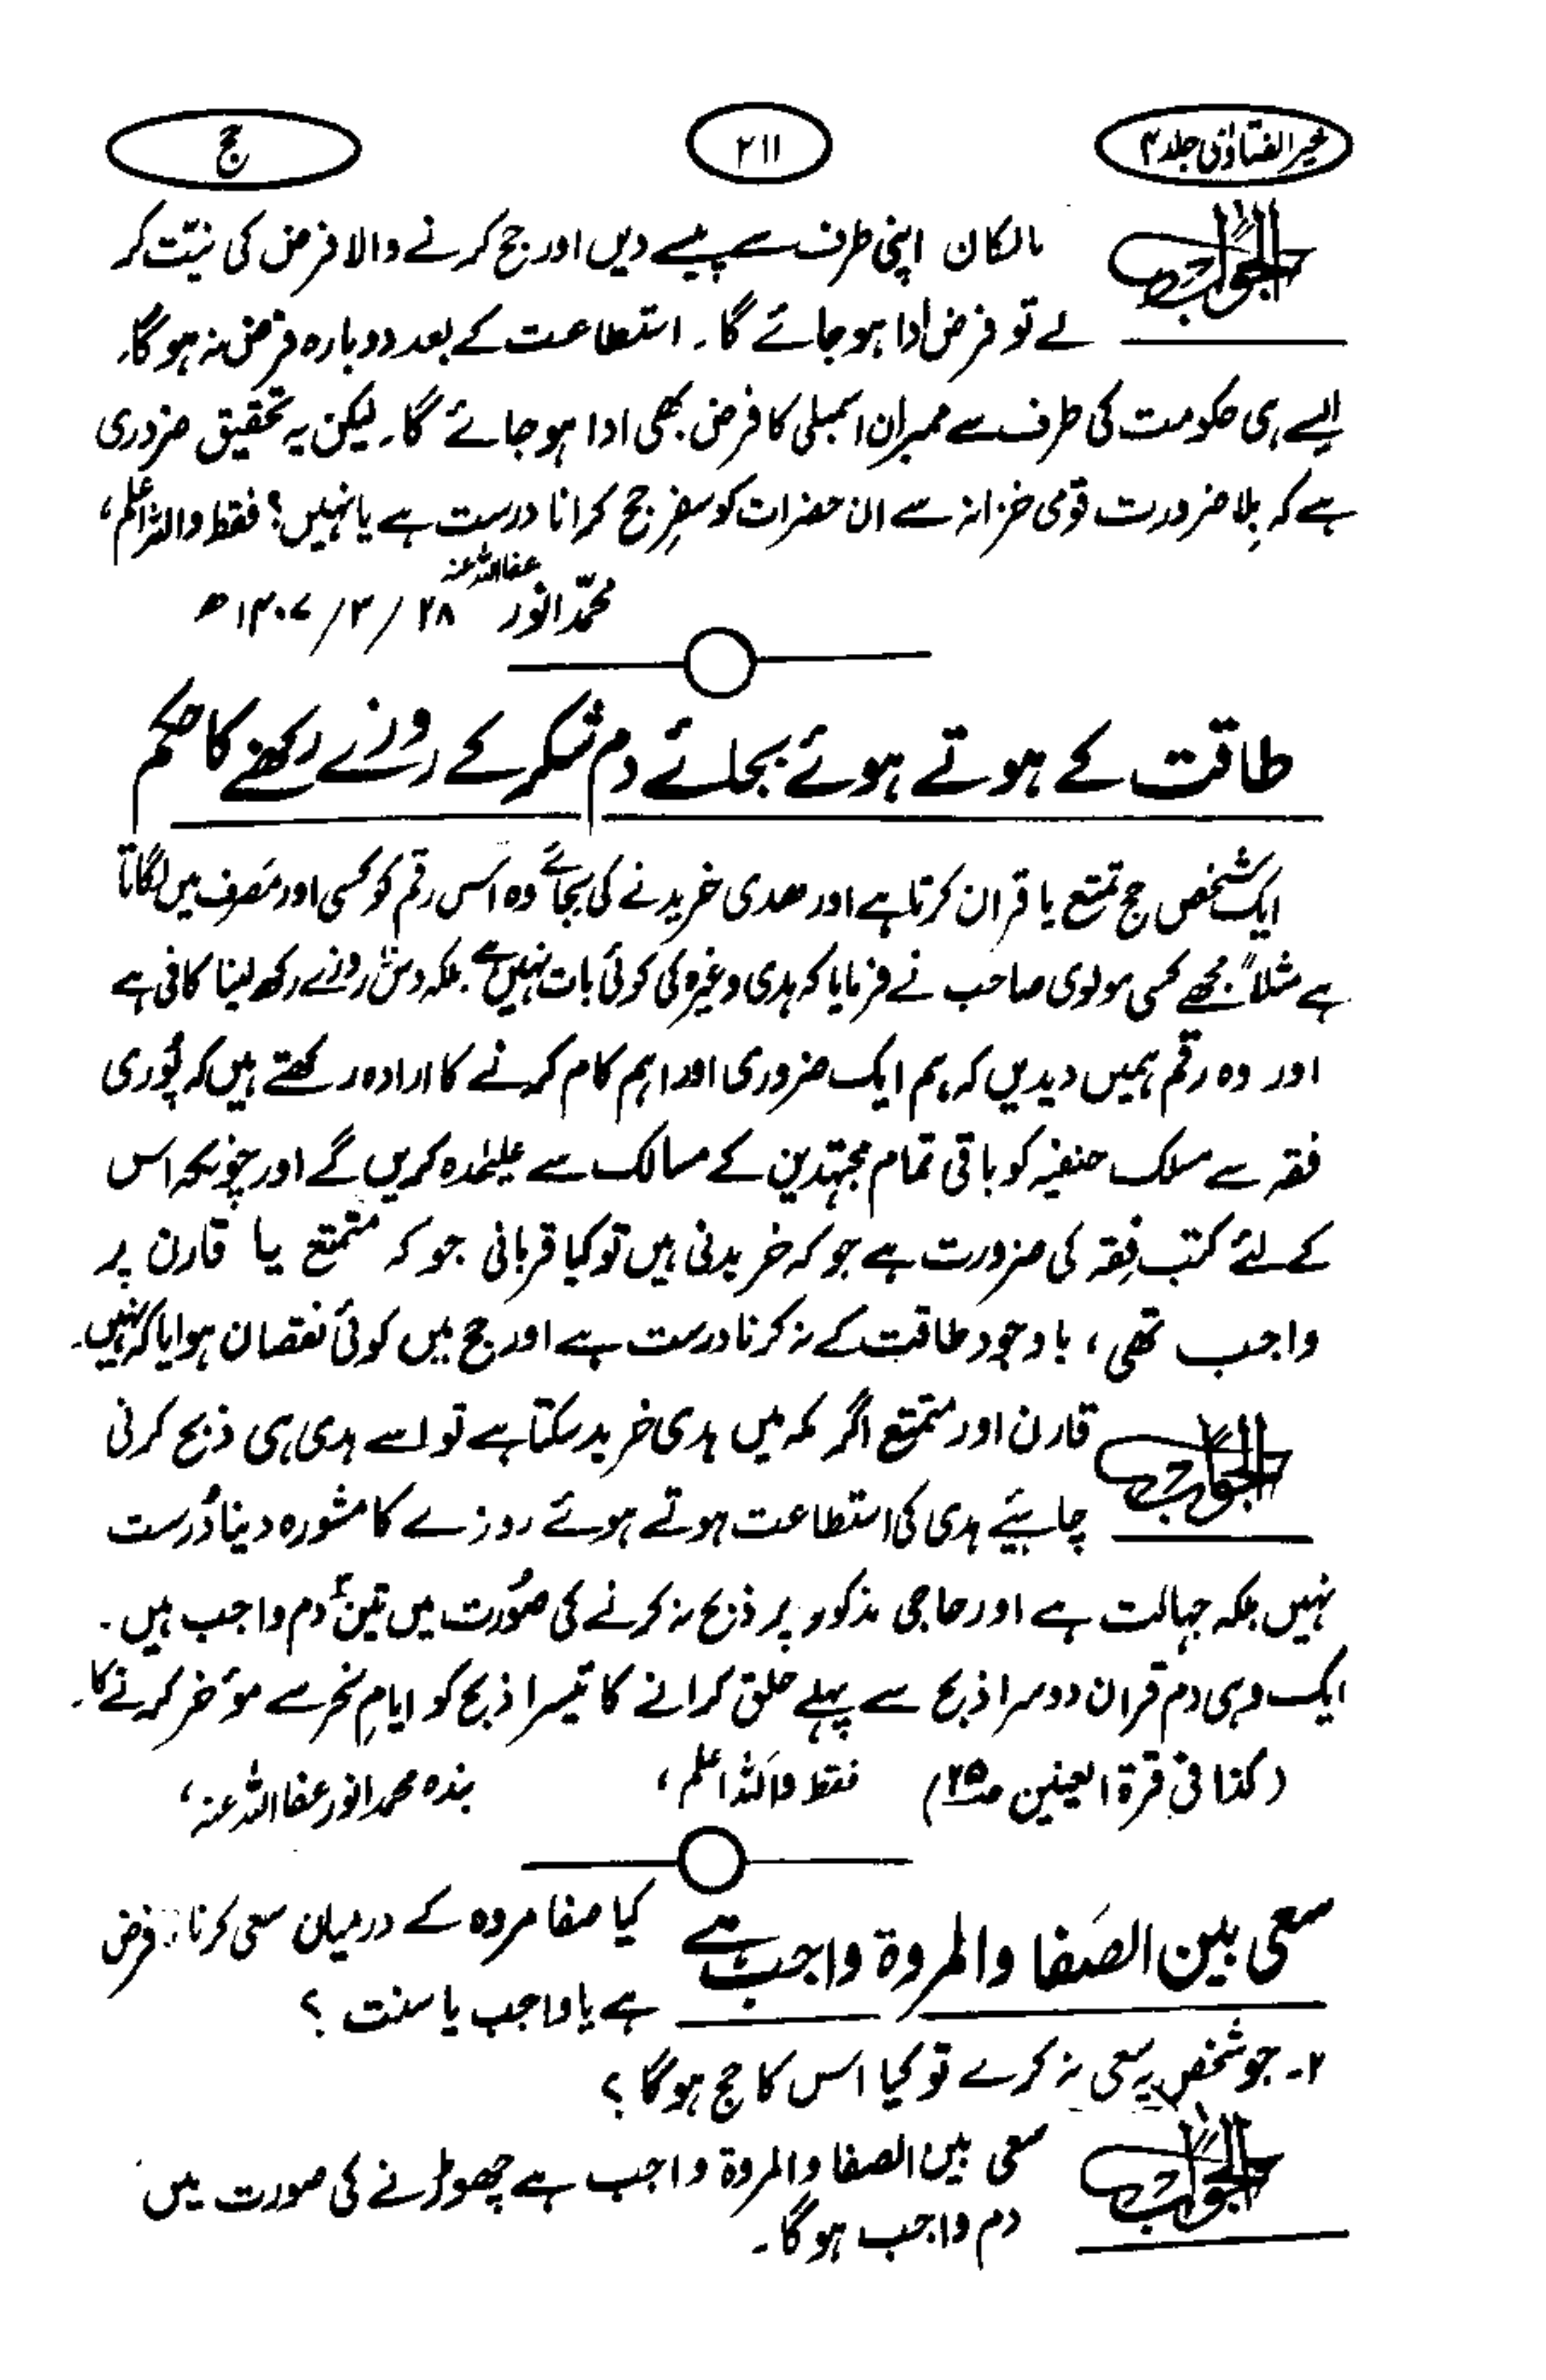 خیر الفتاوٰی جلد ۴
۲۱۱
حج
الجواب
مالکان اپنی طرف سے پیسے دیں اور حج کرنے والا فرض کی نیّت کر
لے تو فرض ادا ہو جائے گا۔ استطاعت کے بعد دوبارہ فرض نہ ہوگا۔
ایسے ہی حکومت کی طرف سے ممبران اسمبلی کا فرض بھی ادا ہو جائے گا۔ لیکن یہ تحقیق ضروری
ہے کہ بِلا ضرورت قومی خزانہ سے ان حضرات کو سفرِ حج کرانا درست ہے یا نہیں؟ فقط واللہ اعلم،
محمّد انور عفا اللہ عنہ ۲۸ /۳/ ۱۴۰۷ھ
طاقت کے ہوتے ہوئے بجائے دم شکر کے روزے رکھنے کا حکم
ایک شخص حج تمتع یا قران کرتا ہے اور ھدی خریدنے کی بجائے وہ اس رقم کو کسی اور مَصرف میں لگاتا
ہے مثلاً مجھے کسی مولوی صاحب نے فرمایا کہ ہدی وغیرہ کی کوئی بات نہیں ہے۔ بلکہ دسؔ روزے رکھ لینا کافی ہے
اور وہ رقم ہمیں دیدیں کہ ہم ایک ضروری اور اہم کام کرنے کا ارادہ رکھتے ہیں کہ پُوری
فقہ سے مسلک حنفیہ کو باقی تمام مجتہدین کے مسالک سے علیٰحدہ کریں گے اور چونکہ اس
کے لئے کتب فِقہ کی ضرورت ہے جو کہ خریدنی ہیں تو کیا قربانی جو کہ متمتع یا قارن پر
واجب تھی، باوجود طاقت کے نہ کرنا درست ہے اور حج میں کوئی نقصان ہوا یا کہ نہیں۔
الجواب
قارن اور متمتع اگر مکہ میں ہدی خرید سکتا ہے تو اسے ہدی ہی ذبح کرنی
چاہیئے ہدی کی استطاعت ہوتے ہوئے روزے کا مشورہ دینا دُرست
نہیں بلکہ جہالت ہے اور حاجی مذکور پر ذبح نہ کرنے کی صُورت میں تینؔ دم واجب ہیں۔
ایک وہی دم قران دوسرا ذبح سے پہلے حلق کرانے کا تیسرا ذبح کو ایامِ نحر سے مؤخر کرنے کا۔
(کذا فی قرۃ العینین ص۲۵) فقط واللہ اعلم، بندہ محمد انور عفا اللہ عنہ،
سعی بین الصَفا والمروۃ واجب ہے
کیا صفا مروہ کے درمیان سعی کرنا فرض
ہے یا واجب یا سنت ؟
۲۔ جو شخص یہ سعی نہ کرے تو کیا اس کا حج ہوگا ؟
الجواب
سعی بین الصفا والمروۃ واجب ہے چھوڑنے کی صورت میں
دم واجب ہوگا۔